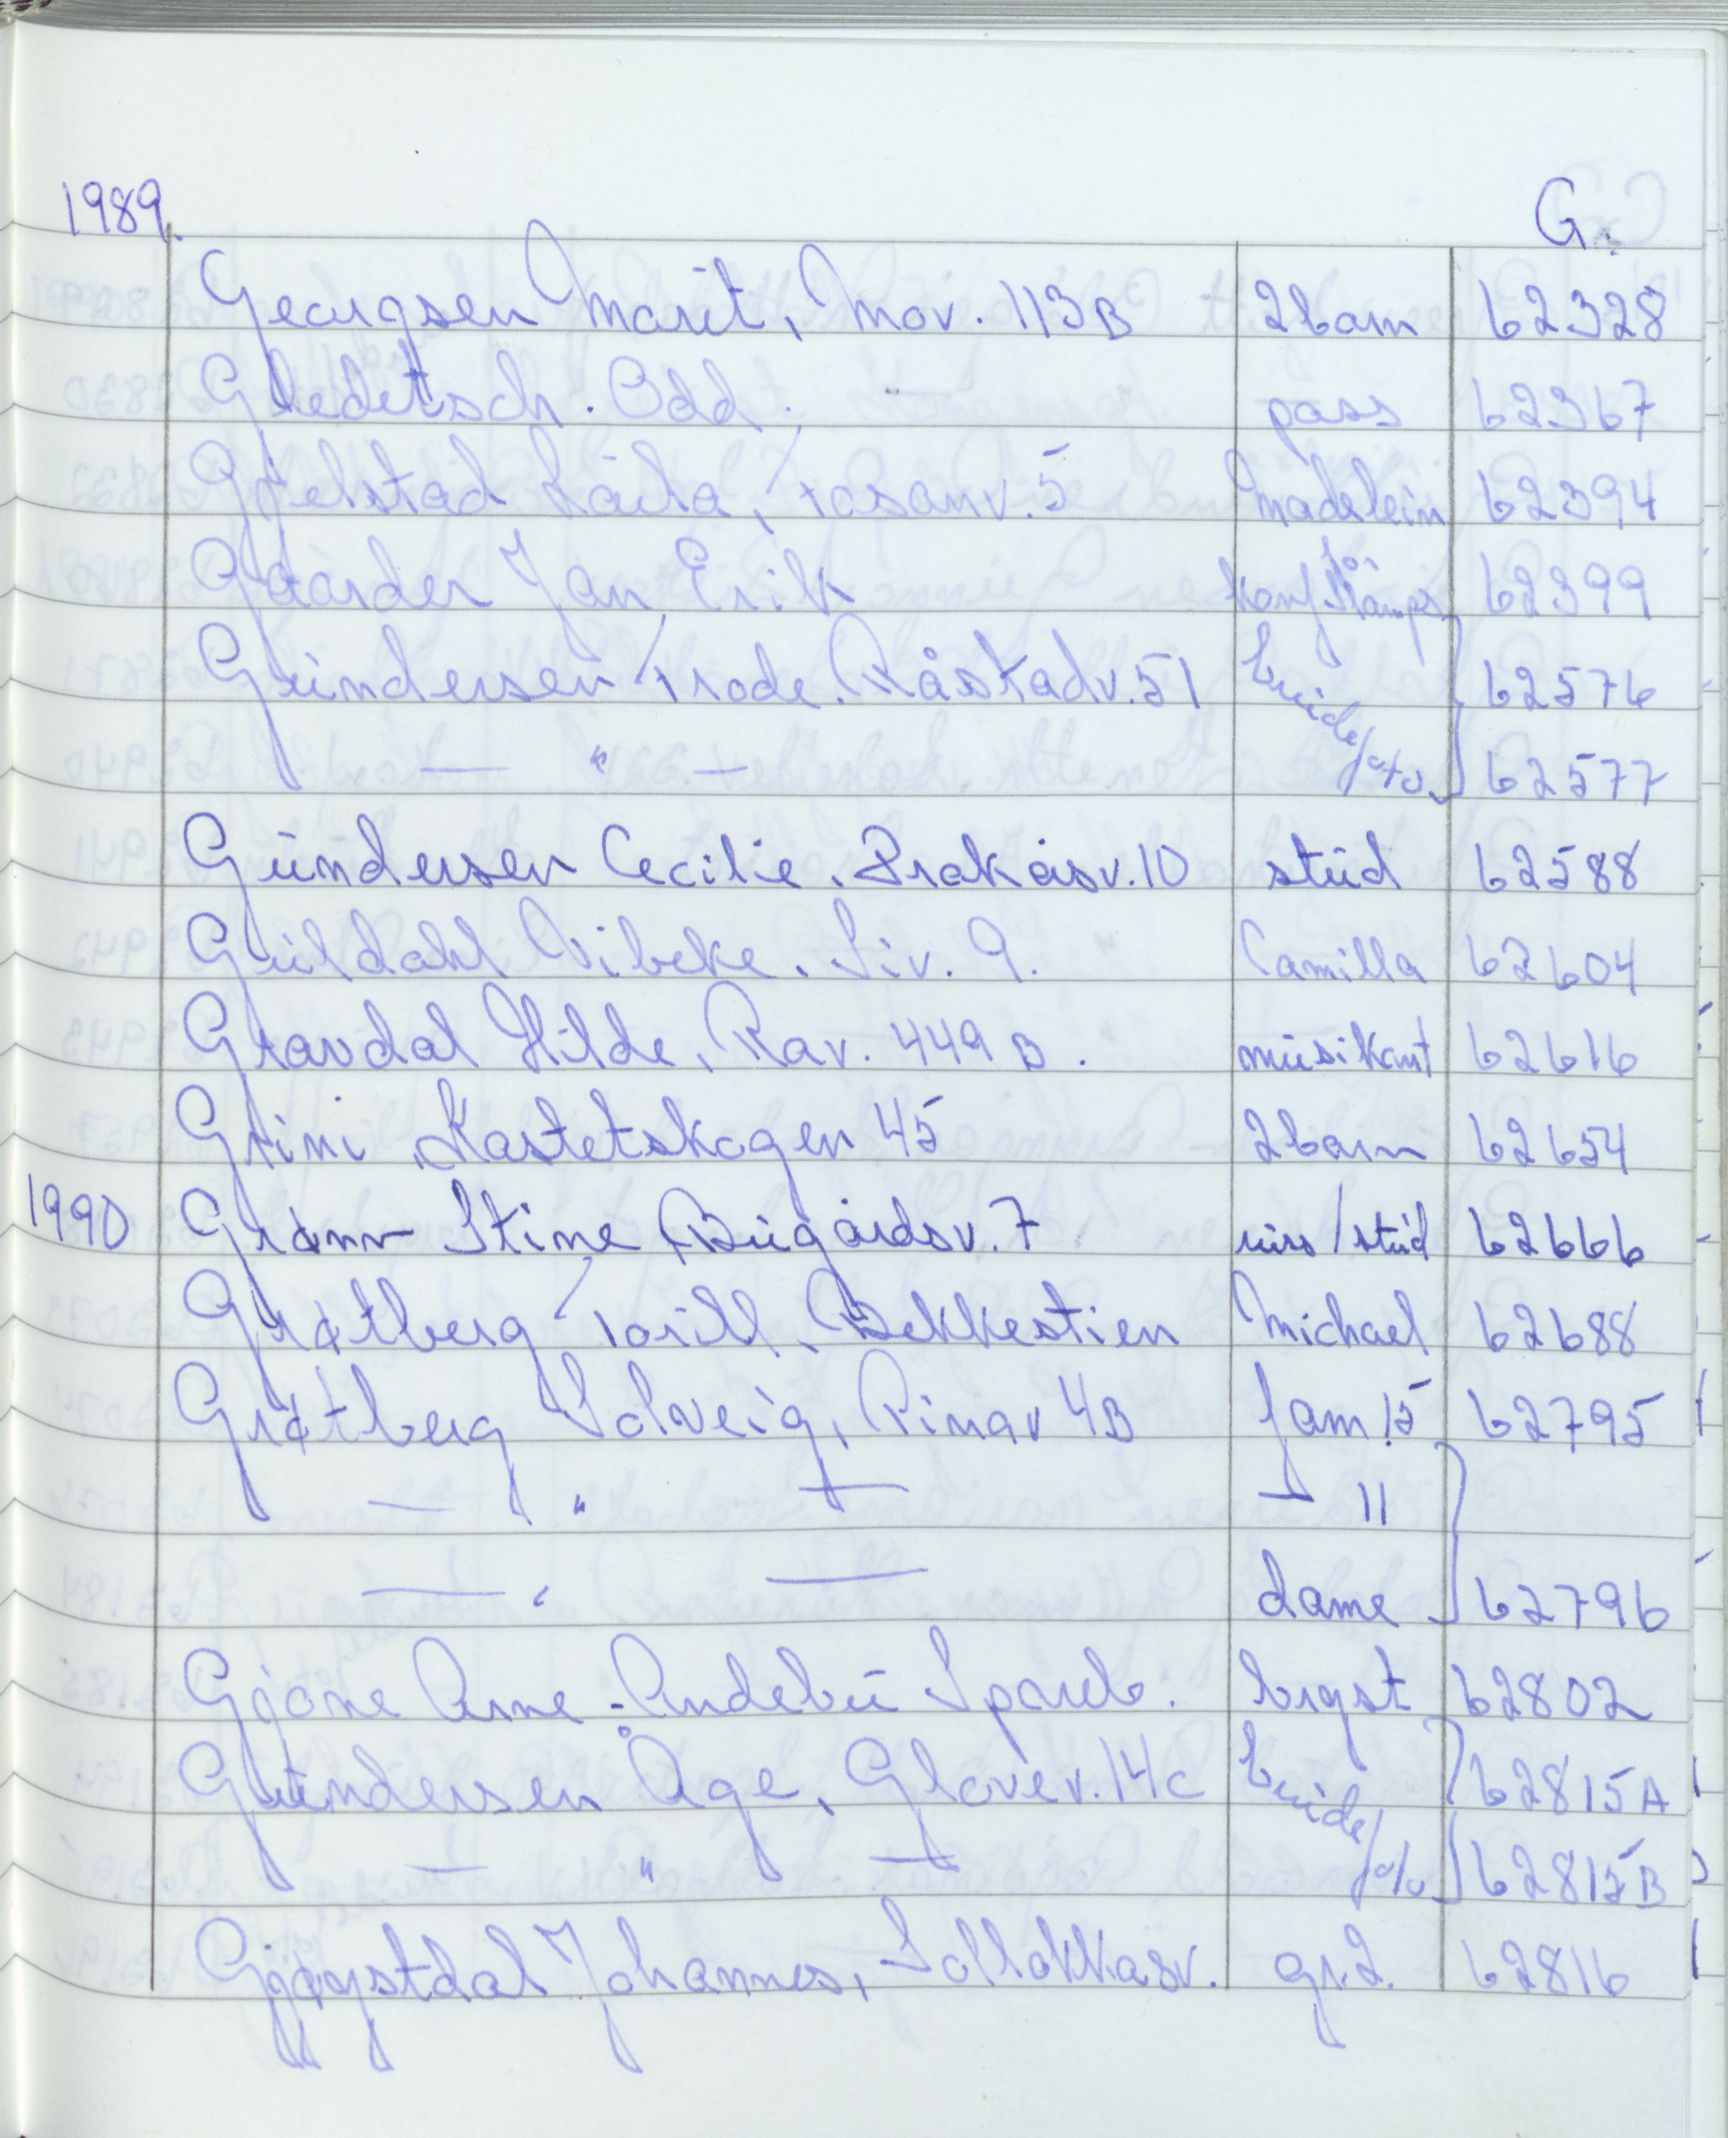 1989. G.
Georgsen Marit, Mov. 113B 2barn 62328
Gleditsch. Odd. pass 62367
Gjelstad Laila, Fosanv. 5 Madelein 62394
Gaarder Jan Erik konf 62399
Gundersen Frode. Råstadv. 51 brude/foto 62576
— " — 62577
Gundersen Cecilie. Prakåsv. 10 stud 62588
Guldahl Vibeke. Siv. 9. Camilla 62604
Gravdal Hilde, Rav. 449 B. musikant 62616
Grini, Kastetskogen 45 2barn 62654
1990 Grønn Stine, Bugårdsv. 7 russ/stud 62666
Grøtberg Torill, Bekkestien Michael 62688
Grøtberg Solveig, Rinav 4B fam 15 62795
— " — — 11
— " — dame 62796
Gjone Arne - Andebu Spareb. bryst 62802
Gundersen Åge, Glover. 14c brude/foto 62815A
— " — 62815B
Gjøystdal Johannes, Solløkkasv. gr. 2. 62816